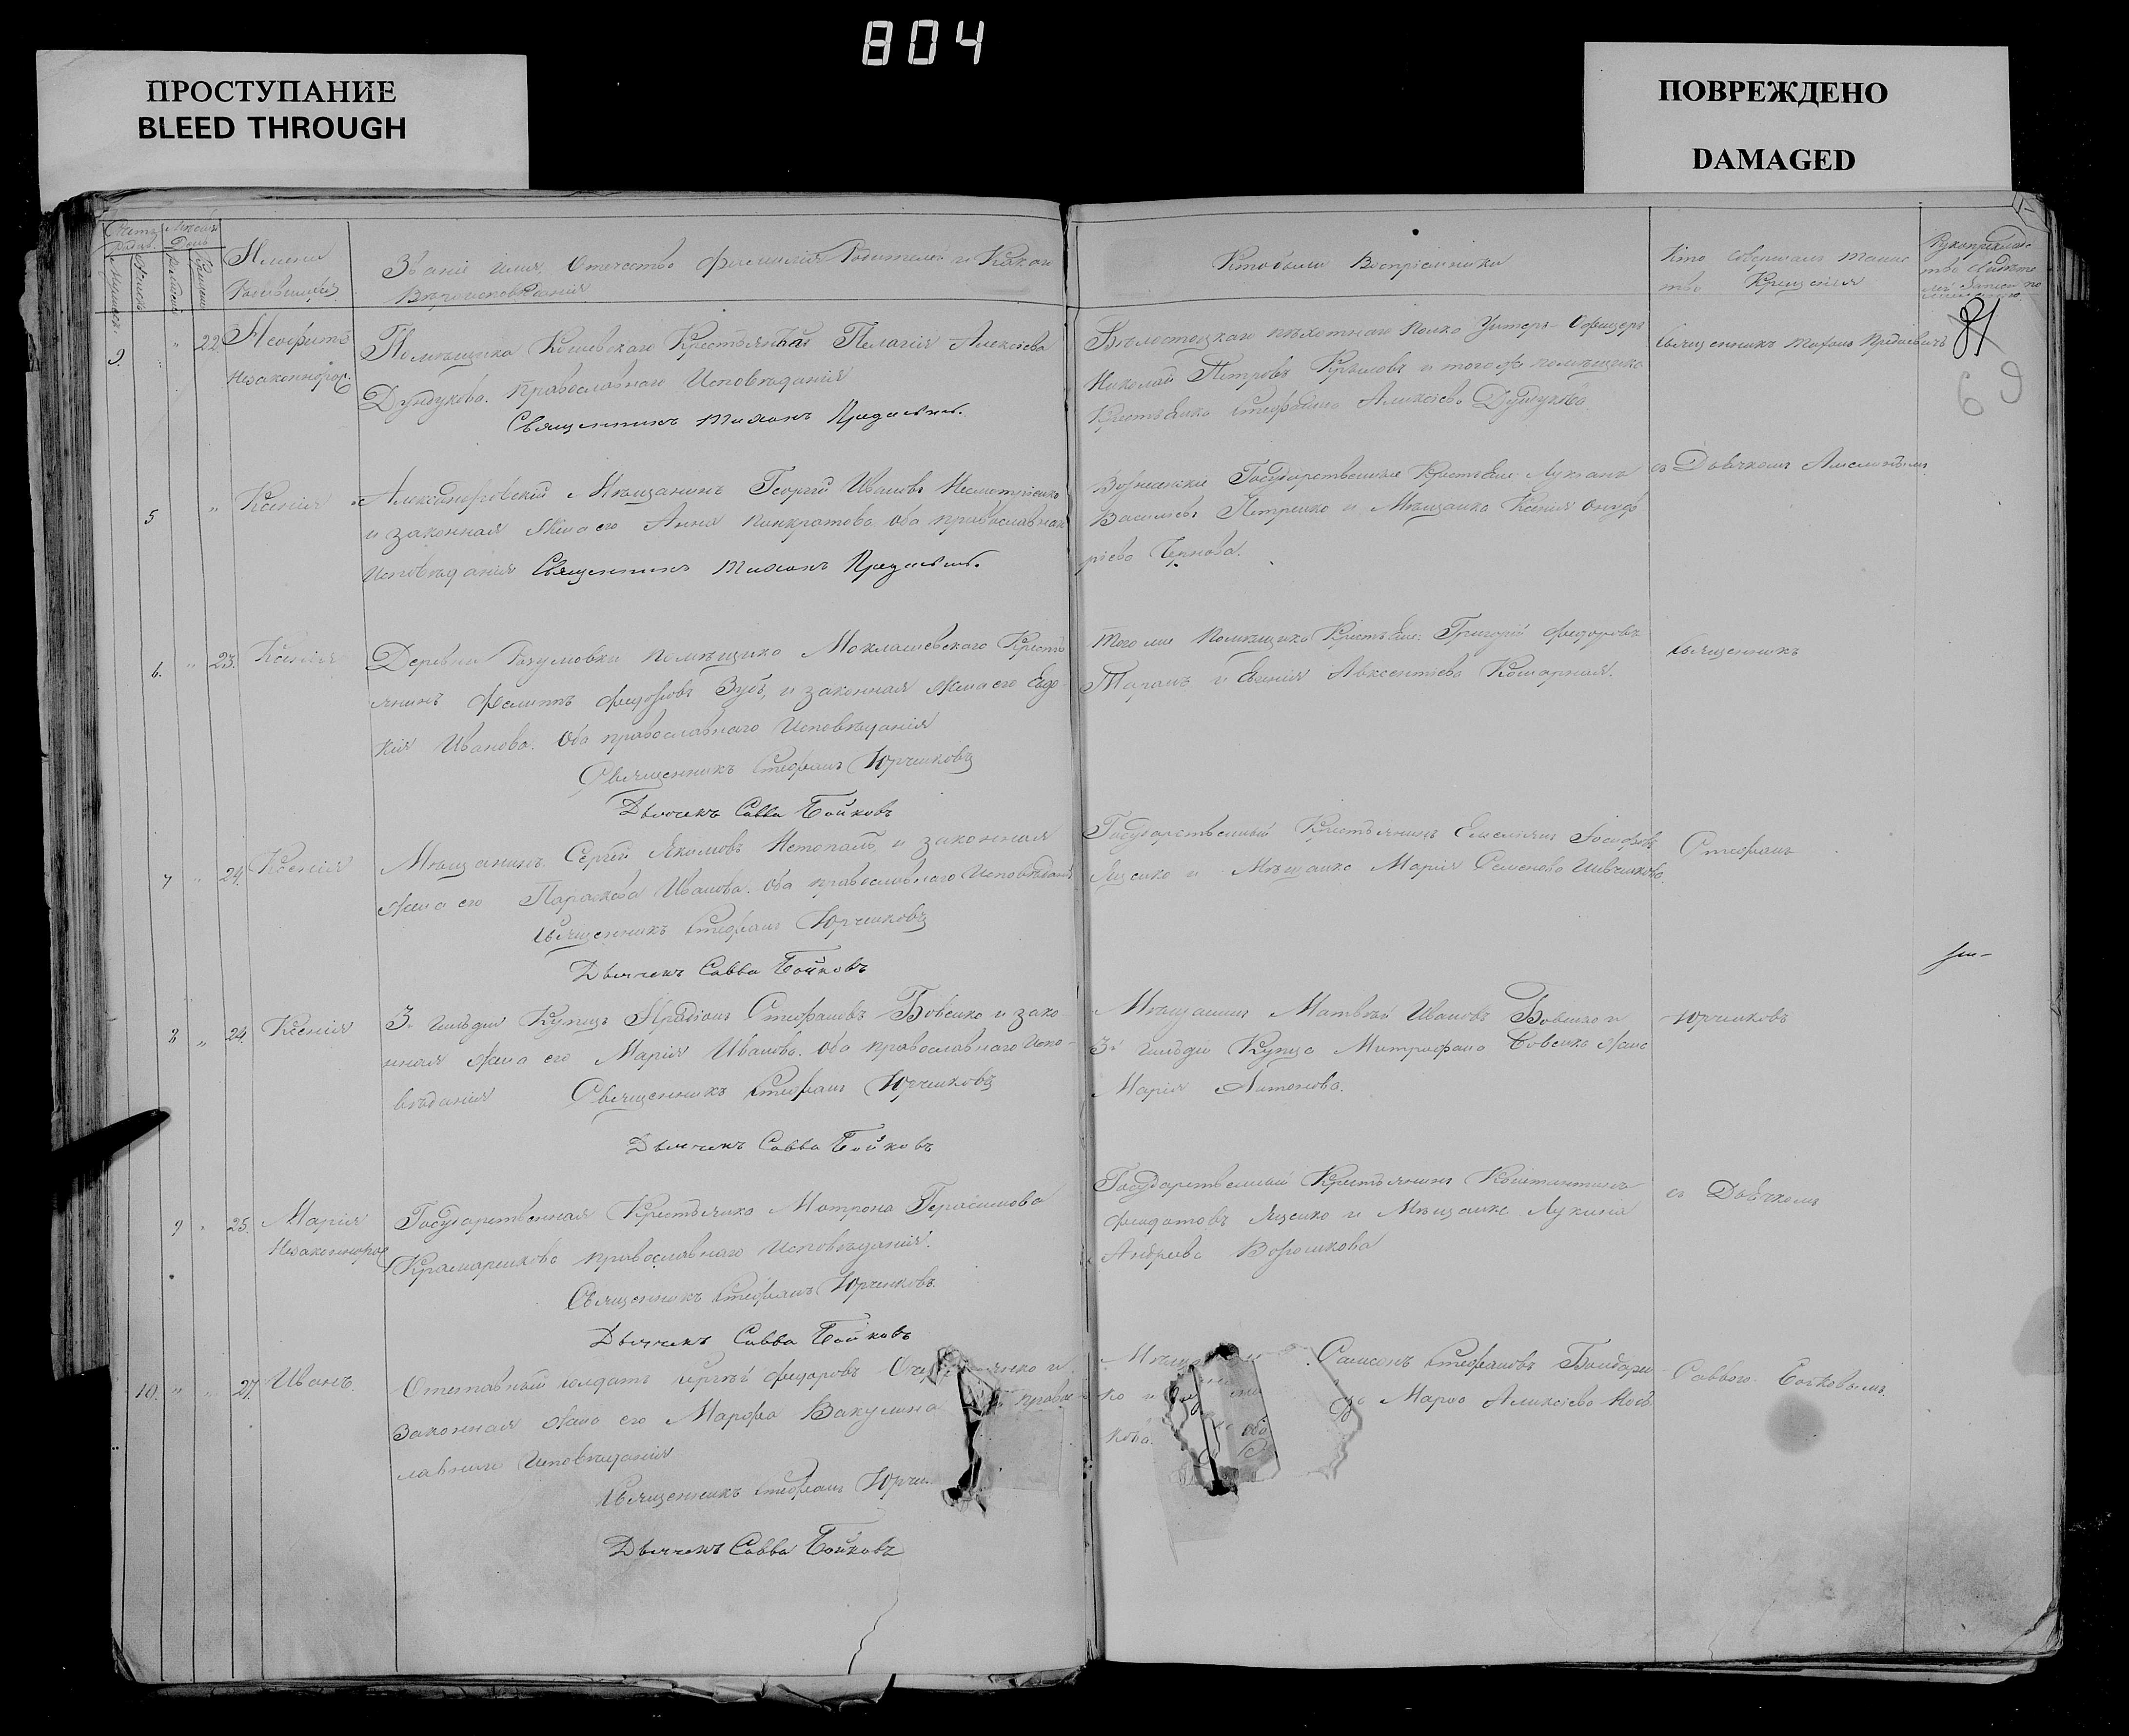 804
ПРОСТУПАНИЕ
BLEED THROUGH
ПОВРЕЖДЕНО
DAMAGED
Счетъ Родив. Мѣсяцъ День
Имена Родившихъ
Званіе имя, Отечество фамилія Родителей и Какого
Вѣроисповѣданія
Кто были Воспріемники
Кто Совершалъ Таинс
тво Крещенія
81
69
3. " 22 Неофитъ
Незаконнорож.
Помѣщика Кошевского Крестьянка Пелагія Алексѣева
Дундукова. Православнаго Исповѣданія
Священникъ Тихонъ
Бѣлостоцкаго пѣхотнаго полка Унтеръ-Офицеръ
Николай Петровъ Крыловъ и тогоже помѣщика
Крестьянка Стефанида Алексѣева Дундукова
Священникъ Тихонъ
5 " Ксенія
Александровскій Мѣщанинъ Георгій Ивановъ
и законная Жена его Анна Панкратова оба православнаго
Исповѣданія Священникъ Тихонъ
Государственные Крестьяне Лукьянъ
Васильевъ Петренко и Мѣщанка Ксенія Онуф
ріева Чернова.
съ Дьячкомъ
6. " 23. Ксенія
Деревни Разумовки помѣщика Моклашевского Кресть
янинъ Филиппъ Федоровъ Зубъ, и законная Жена его Евдо
кія Иванова. Оба православнаго Исповѣданія
Священникъ Стефанъ Юрченковъ
Дьячекъ Савва Бойковъ
того же Помѣщика Крестьяне: Григорій Федоровъ
Таранъ и Евгенія Авксентіева Комарная.
Священникъ
7 " 24. Ксенія
Мѣщанинъ Сергѣй Якимовъ и законная
Жена его Параскева Иванова. Оба православнаго Исповѣданія
Священникъ Стефанъ Юрченковъ
Дьячекъ Савва Бойковъ
Государственный Крестьянинъ Емеліянъ Іосифовъ
Яценко и Мѣщанка Марія Семенова Шевченкова.
Стефанъ
8 " 24. Ксенія
3й гильдіи Купецъ Иродіонъ Стефановъ Бовенко и зако
нная Жена его Марія Иванова. Оба православнаго Испо-
вѣданія Священникъ Стефанъ Юрченковъ
Дьячекъ Савва Бойковъ
Мѣщанинъ Матвѣй Ивановъ Бовенко и
3й гильдіи Купца Митрофана Бовенка Жена
Марія Антонова.
Юрченковъ
9 " 25. Марія
Незаконнорож
Государственная Крестьянка Матрона Герасимова
Крамаренкова православнаго Исповѣданія.
Священникъ Стефанъ Юрченковъ.
Дьячекъ Савва Бойковъ
Государственный Крестьянинъ Константинъ
Федотовъ Яценко и Мѣщанка Лукина
Андреева Ворошкова
съ Дьячкомъ
10. " " 27. Иванъ.
Отставный солдатъ Сергѣй Федоровъ
Законная Жена его Марфа Вакулина правос
лавнаго Исповѣданія
Священникъ Стефанъ Юрчен
Дьячекъ Савва Бойковъ
Самсонъ Стефановъ Бондарен
ко и Марѳа Алексіева Нов
кова.
Саввою Бойковымъ.